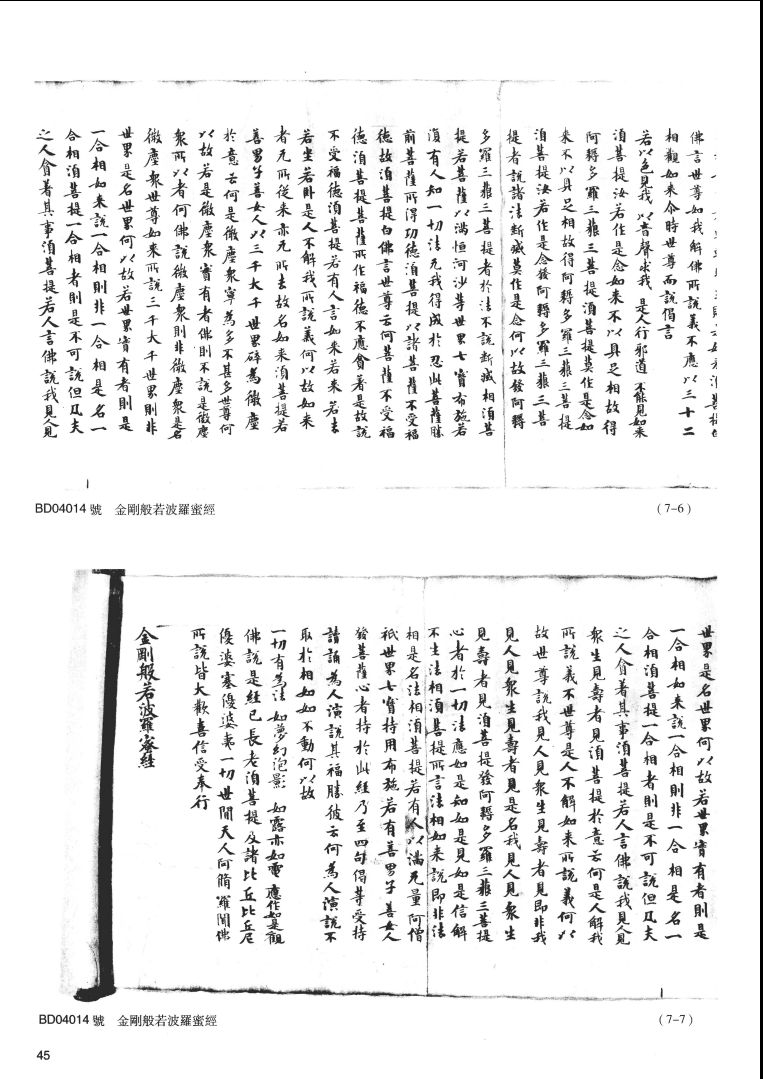 佛言世尊如我解佛所說義不應以三十二
相觀如來尒時世尊而說偈言
若以色見我 以音聲求我 是人行邪道 不能見如來
須菩提汝若作是念如來不以具足相故得
阿耨多羅三藐三菩提須菩提莫作是念如
來不以具足相故得阿耨多羅三藐三菩提
須菩提汝若作是念發阿耨多羅三藐三菩
提者說諸法斷滅莫作是念何以故發阿耨
多羅三藐三菩提者於法不說斷滅相須菩
提若菩薩以滿恒河沙等世界七寶布施若
復有人知一切法无我得成於忍此菩薩勝
前菩薩所得功德須菩提以諸菩薩不受福
德故須菩提白佛言世尊云何菩薩不受福
德須菩提菩薩所作福德不應貪著是故說
不受福德須菩提若有人言如來若來若去
若坐若卧是人不解我所說義何以故如來
者无所從来亦无所去故名如來須菩提若
善男子善女人以三千大千世界碎為微塵
於意云何是微塵衆寧為多不甚多世尊何
以故若是微塵衆實有者佛則不說是微塵
衆所以者何佛說微塵衆則非微塵衆是名
微塵衆世尊如來所說三千大千世界則非
世界是名世界何以故若世界實有者則是
一合相如來說一合相則非一合相是名一
合相須菩提一合相者則是不可說但凡夫
之人貪著其事須菩提若人言佛說我見人見
BD04014號 金剛般若波羅蜜經
(7-6)
世界是名世界何以故若世界實有者則是
一合相如來說一合相則非一合相是名一
合相須菩提一合相者則是不可說但凡夫
之人貪著其事須菩提若人言佛說我見人見
衆生見壽者見須菩提於意云何是人解我
所說義不世尊是人不解如來所說義何以
故世尊說我見人見衆生見壽者見即非我
見人見衆生見壽者見是名我見人見衆生
見壽者見須菩提發阿耨多羅三藐三菩提
心者於一切法應如是知如是見如是信解
不生法相須菩提所言法相如來說即非法
相是名法相須菩提若有人以滿无量阿僧
祇世界七寶持用布施若有善男子善女人
發菩薩心者持於此經乃至四句偈等受持
讀誦為人演說其福勝彼云何為人演說不
取於相如如不動何以故
一切有為法 如夢幻泡影 如露亦如電 應作如是觀
佛說是經已長老須菩提及諸比丘比丘尼
優婆塞優婆夷一切世間天人阿脩羅聞佛
所說皆大歡喜信受奉行
金剛般若波羅蜜經
BD04014號 金剛般若波羅蜜經
(7-7)
45